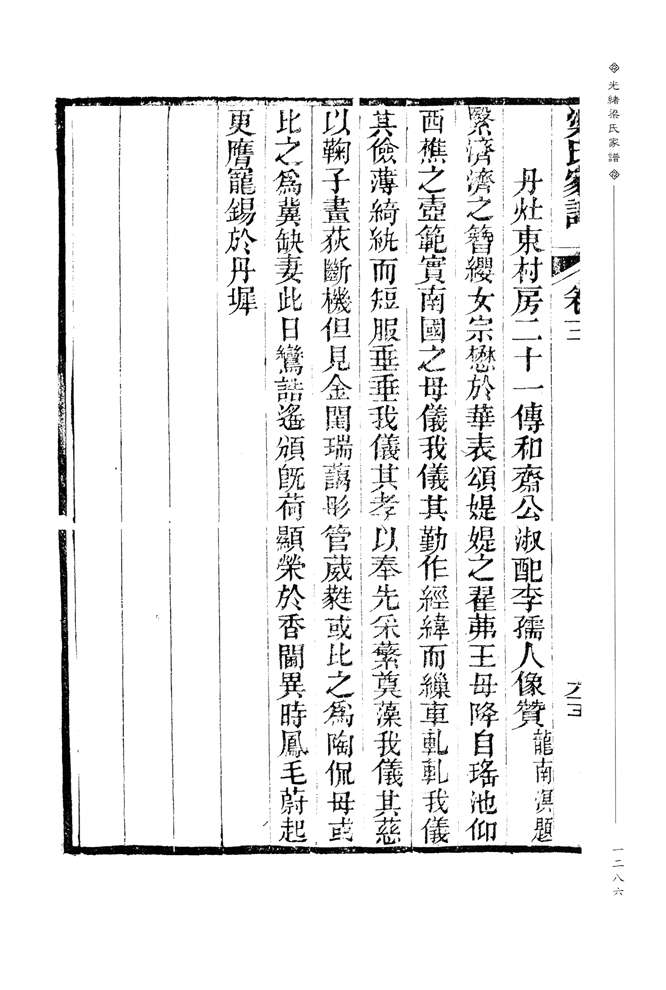 光緒梁氏家譜
梁氏家譜 卷三
丹灶東村房二十一傳和齋公淑配李孺人像贊 龍南溟題
繄濟濟之簪纓女宗懋於華表頌媞媞之翟茀王母降自瑤池仰
西樵之壺範實南國之母儀我儀其勤作經緯而繅車軋軋我儀
其儉薄綺紈而短服垂垂我儀其孝以奉先采蘩奠藻我儀其慈
以鞠子畫荻斷機但見金閨瑞藹彤管葳蕤或比之為陶侃母或
比之為冀缺妻此日鸞誥遙頒既荷顯榮於香閣異時鳳毛蔚起
更膺寵錫於丹墀
一二八六